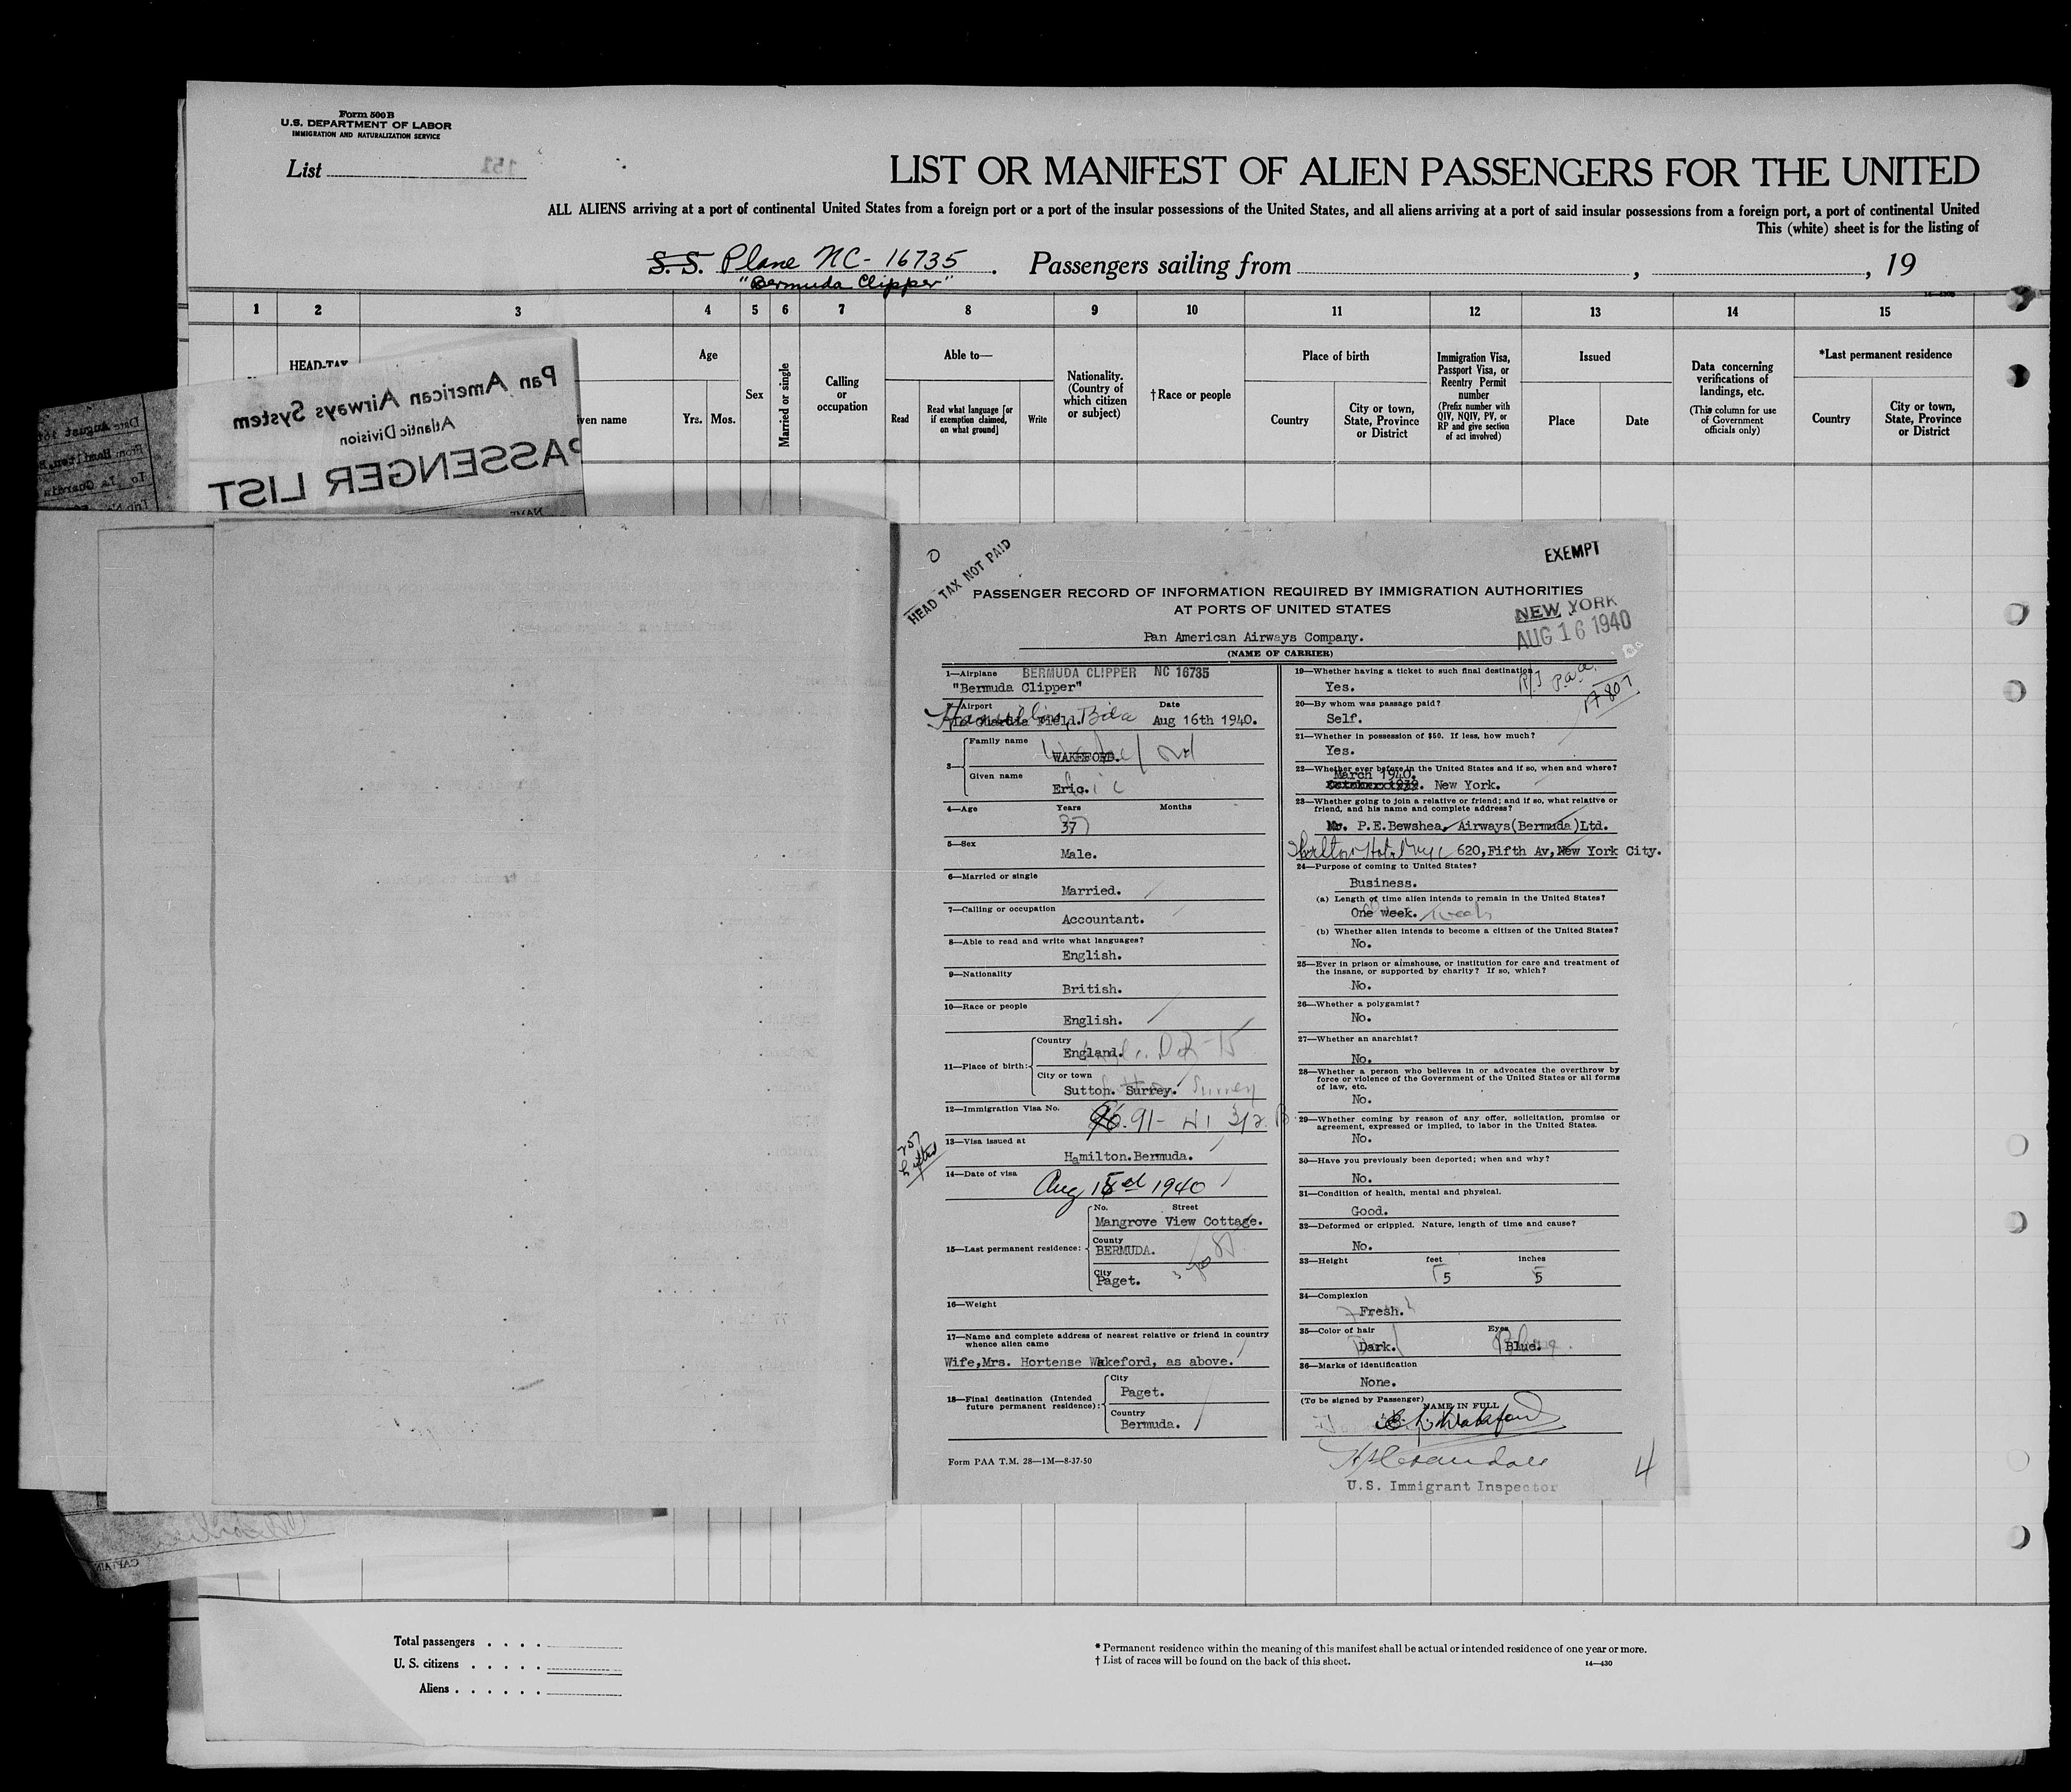 Form 500 B
U.S. DEPARTMENT OF LABOR
IMMIGRATION AND NATURALIZATION SERVICE
List 151
LIST OR MANIFEST OF ALIEN PASSENGERS FOR THE UNITED
ALL ALIENS arriving at a port of continental United States from a foreign port or a port of the insular possessions of the United States, and all aliens arriving at a port of said insular possessions from a foreign port, a port of continental United
This (white) sheet is for the listing of
S. S. Plane NC-16735 . Passengers sailing from , , 19
"Bermuda Clipper"
1 2 3 4 5 6 7 8 9 10 11 12 13 14 15
HEAD-TAX
ven name
Age
Yrs. Mos.
Sex
Married or single
Calling
or
occupation
Able to—
Read
Read what language [or
if exemption claimed,
on what ground]
Write
Nationality.
(Country of
which citizen
or subject)
† Race or people
Place of birth
Country
City or town,
State, Province
or District
Immigration Visa,
Passport Visa, or
Reentry Permit
number
(Prefix number with
QIV, NQIV, PV, or
RP and give section
of act involved)
Issued
Place
Date
Data concerning
verifications of
landings, etc.
(This column for use
of Government
officials only)
*Last permanent residence
Country
City or town,
State, Province
or District
Pan American Airways System
Atlantic Division
PASSENGER LIST
NAME
HEAD TAX NOT PAID
EXEMPT
PASSENGER RECORD OF INFORMATION REQUIRED BY IMMIGRATION AUTHORITIES
AT PORTS OF UNITED STATES
NEW YORK
AUG 16 1940
Pan American Airways Company.
(NAME OF CARRIER)
1—Airplane BERMUDA CLIPPER NC 16735
"Bermuda Clipper"
2—Airport Date
Hamilton, Bda Aug 16th 1940.
3— Family name
WAKEFORD.
Given name
Eric.
4—Age Years Months
37
5—Sex
Male.
6—Married or single
Married.
7—Calling or occupation
Accountant.
8—Able to read and write what languages?
English.
9—Nationality
British.
10—Race or people
English.
11—Place of birth: Country
England.
City or town
Sutton. Surrey.
12—Immigration Visa No.
13—Visa issued at
Hamilton.Bermuda.
14—Date of visa
Aug 1940
15—Last permanent residence: No. Street
Mangrove View Cottage.
County
BERMUDA.
City
Paget.
16—Weight
17—Name and complete address of nearest relative or friend in country
whence alien came
Wife,Mrs. Hortense Wakeford, as above.
18—Final destination (Intended
future permanent residence): City
Paget.
Country
Bermuda.
Form PAA T.M. 28—1M—8-37-50
19—Whether having a ticket to such final destination
Yes.
20—By whom was passage paid?
Self.
21—Whether in possession of $50. If less, how much?
Yes.
22—Whether ever before in the United States and if so, when and where?
March 1940.
October 1939. New York.
23—Whether going to join a relative or friend; and if so, what relative or
friend, and his name and complete address?
Mr. P.E.Bewshea, Airways(Bermuda)Ltd.
620,Fifth Av,New York City.
24—Purpose of coming to United States?
Business.
(a) Length of time alien intends to remain in the United States?
One week.
(b) Whether alien intends to become a citizen of the United States?
No.
25—Ever in prison or almshouse, or institution for care and treatment of
the insane, or supported by charity? If so, which?
No.
26—Whether a polygamist?
No.
27—Whether an anarchist?
No.
28—Whether a person who believes in or advocates the overthrow by
force or violence of the Government of the United States or all forms
of law, etc.
No.
29—Whether coming by reason of any offer, solicitation, promise or
agreement, expressed or implied, to labor in the United States.
No.
30—Have you previously been deported; when and why?
No.
31—Condition of health, mental and physical.
Good.
32—Deformed or crippled. Nature, length of time and cause?
No.
33—Height feet inches
5 5
34—Complexion
Fresh.
35—Color of hair Eyes
Dark. Blue.
36—Marks of identification
None.
(To be signed by Passenger)
NAME IN FULL
U.S. Immigrant Inspector
4
Total passengers . . . .
U. S. citizens . . . . .
Aliens . . . . . .
* Permanent residence within the meaning of this manifest shall be actual or intended residence of one year or more.
† List of races will be found on the back of this sheet.
14—430